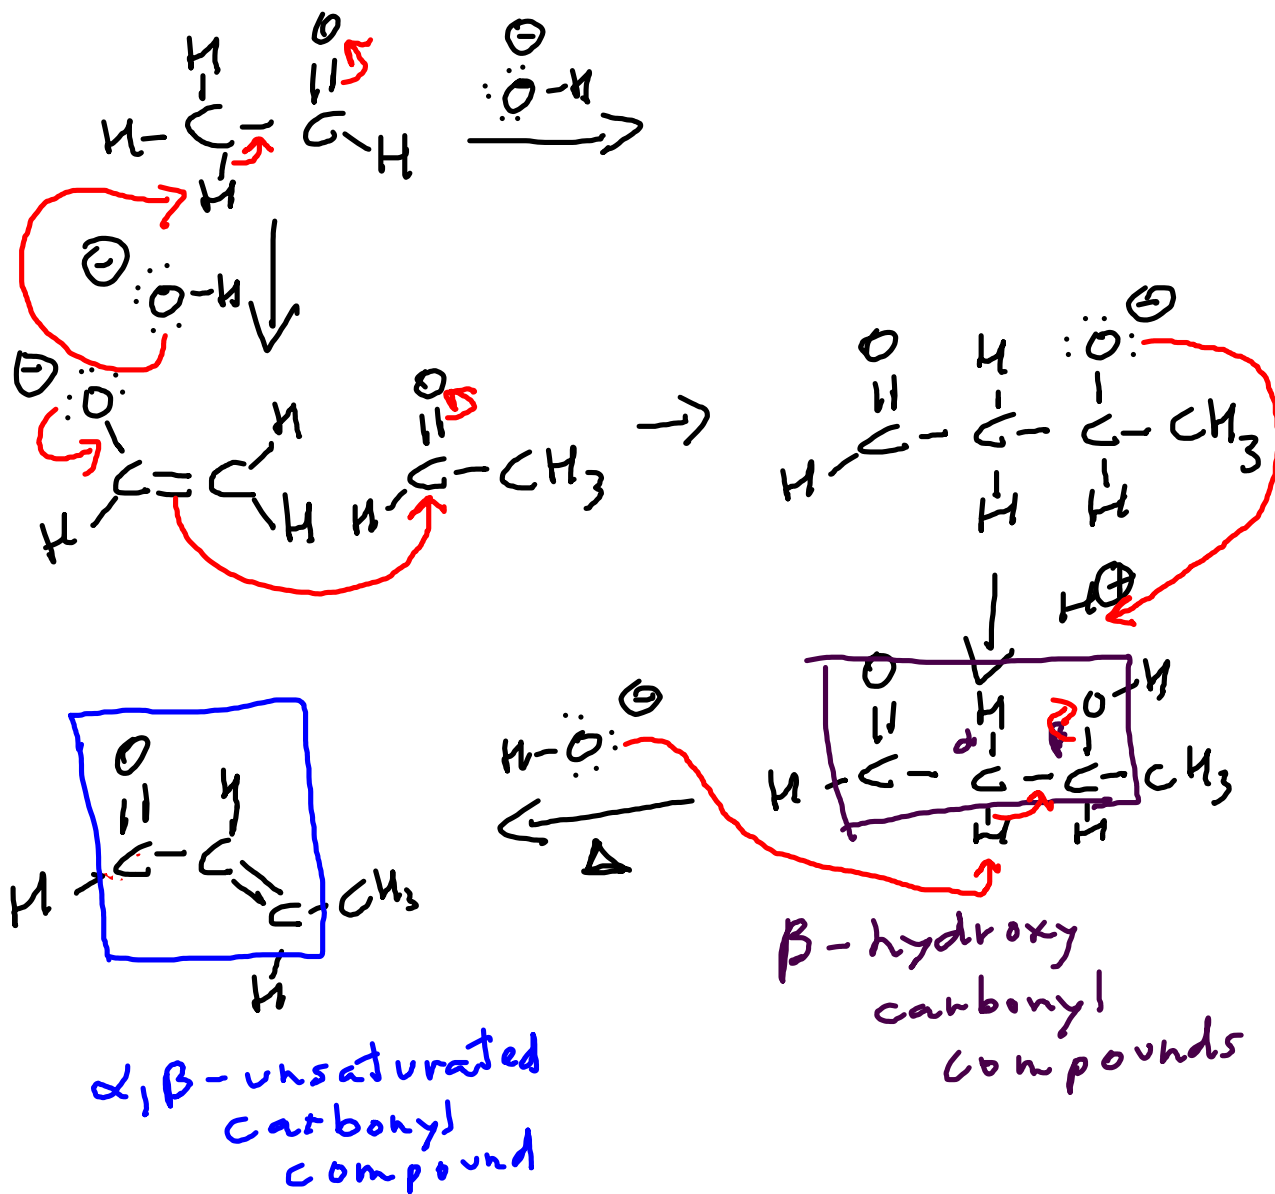 H
O
⊖
H-C-C
:Ö-H
H
H
⊖
:Ö-H
⊖
:Ö
H
O
C=C
C-CH3
H
H
H
O
H
:Ö: ⊖
C-C-C-CH3
H
H
H
H⊕
O
H
O
H
α
C-C-C-CH3
H
H
H
H-Ö: ⊖
Δ
O
H
C-C
H
C-CH3
H
β-hydroxy
carbonyl
compounds
α,β-unsaturated
carbonyl
compound